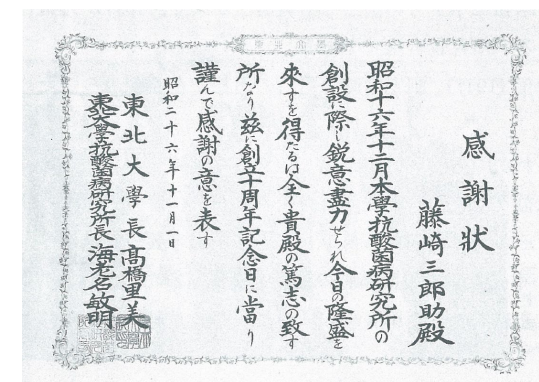 感謝狀
藤崎三郎助殿
昭和十六年十二月本學抗酸菌病研究所の
創設に際し鋭意盡力せられ今日の隆盛を
來すを得たるは全く貴殿の篤志の致す
所なり茲に創立十周年記念日に當り
謹んで感謝の意を表す
昭和二十六年十一月一日
東北大學長高橋里美
東北大學抗酸菌病研究所長海老名敏明